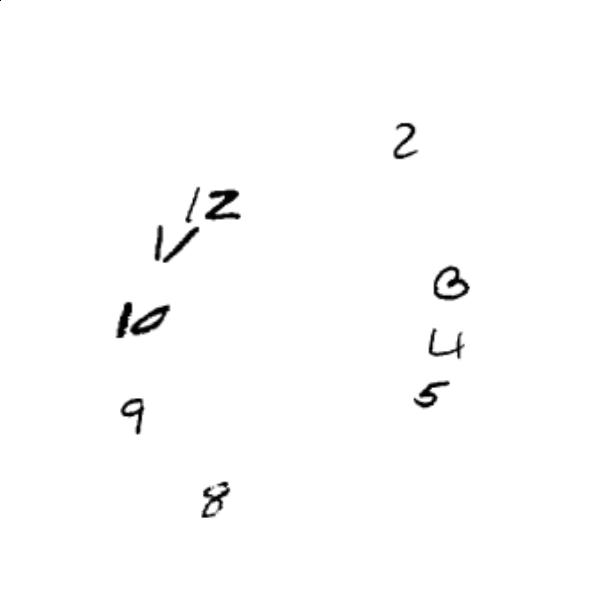 2
12
11
3
10
4
5
9
8